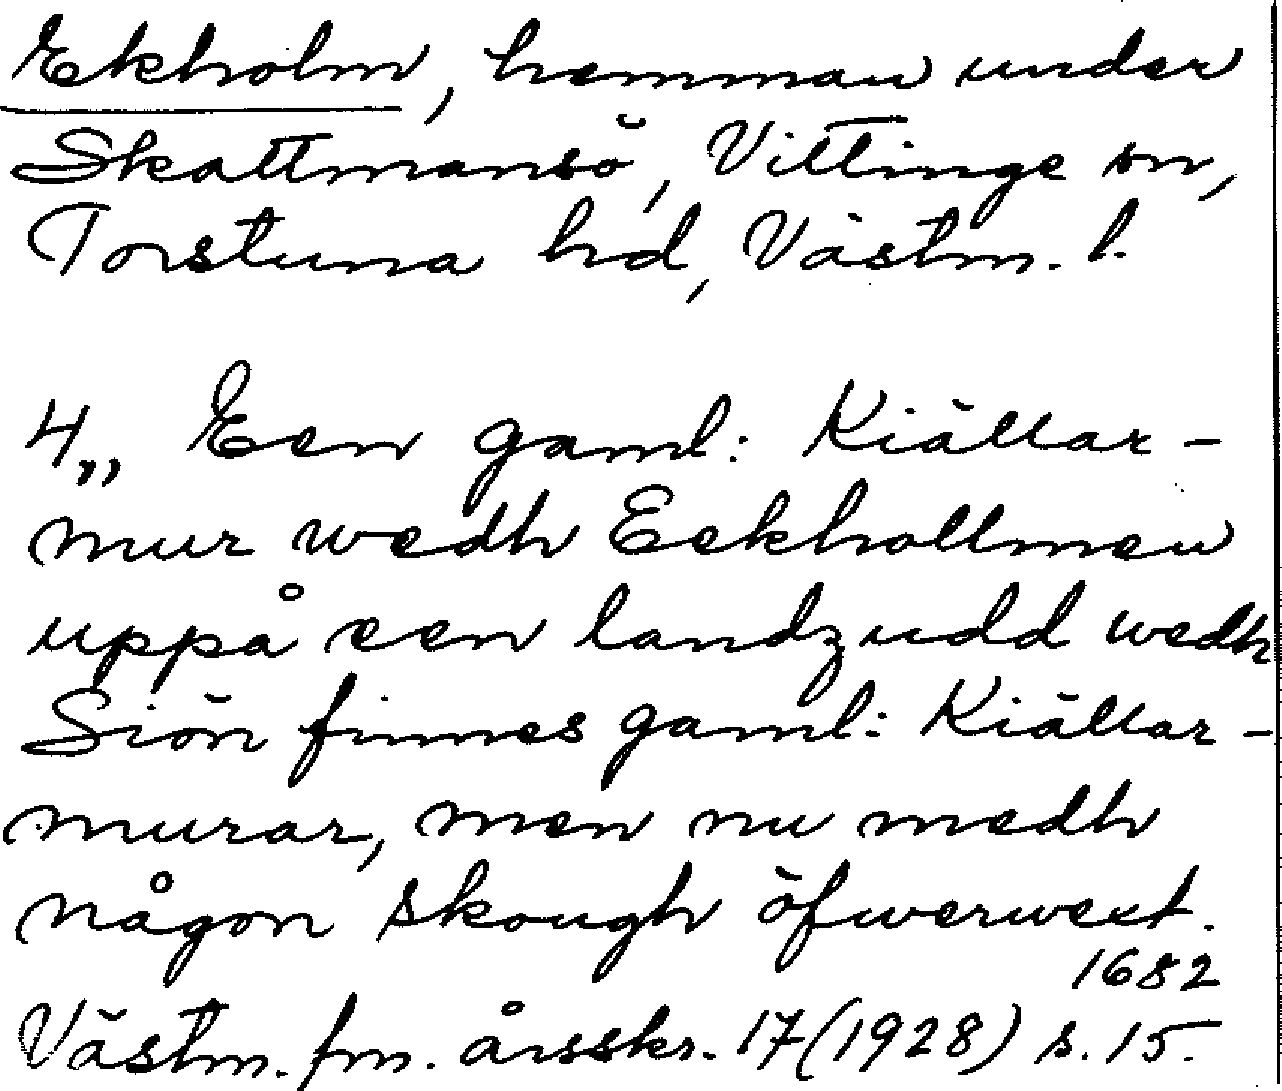 Ekholm, hemman under
Skattmansö, Vittinge sn,
Torstuna hd, Västm. l.
4,, Een gaml: Kiällar-
mur wedh Eekhollmen
uppå een landzudd wedh
Siön finnes gaml: Kiällar-
murar, men nu medh
någon skough öfwerwext.
1682
Västm. fm. årsskr. 17 (1928) s. 15.